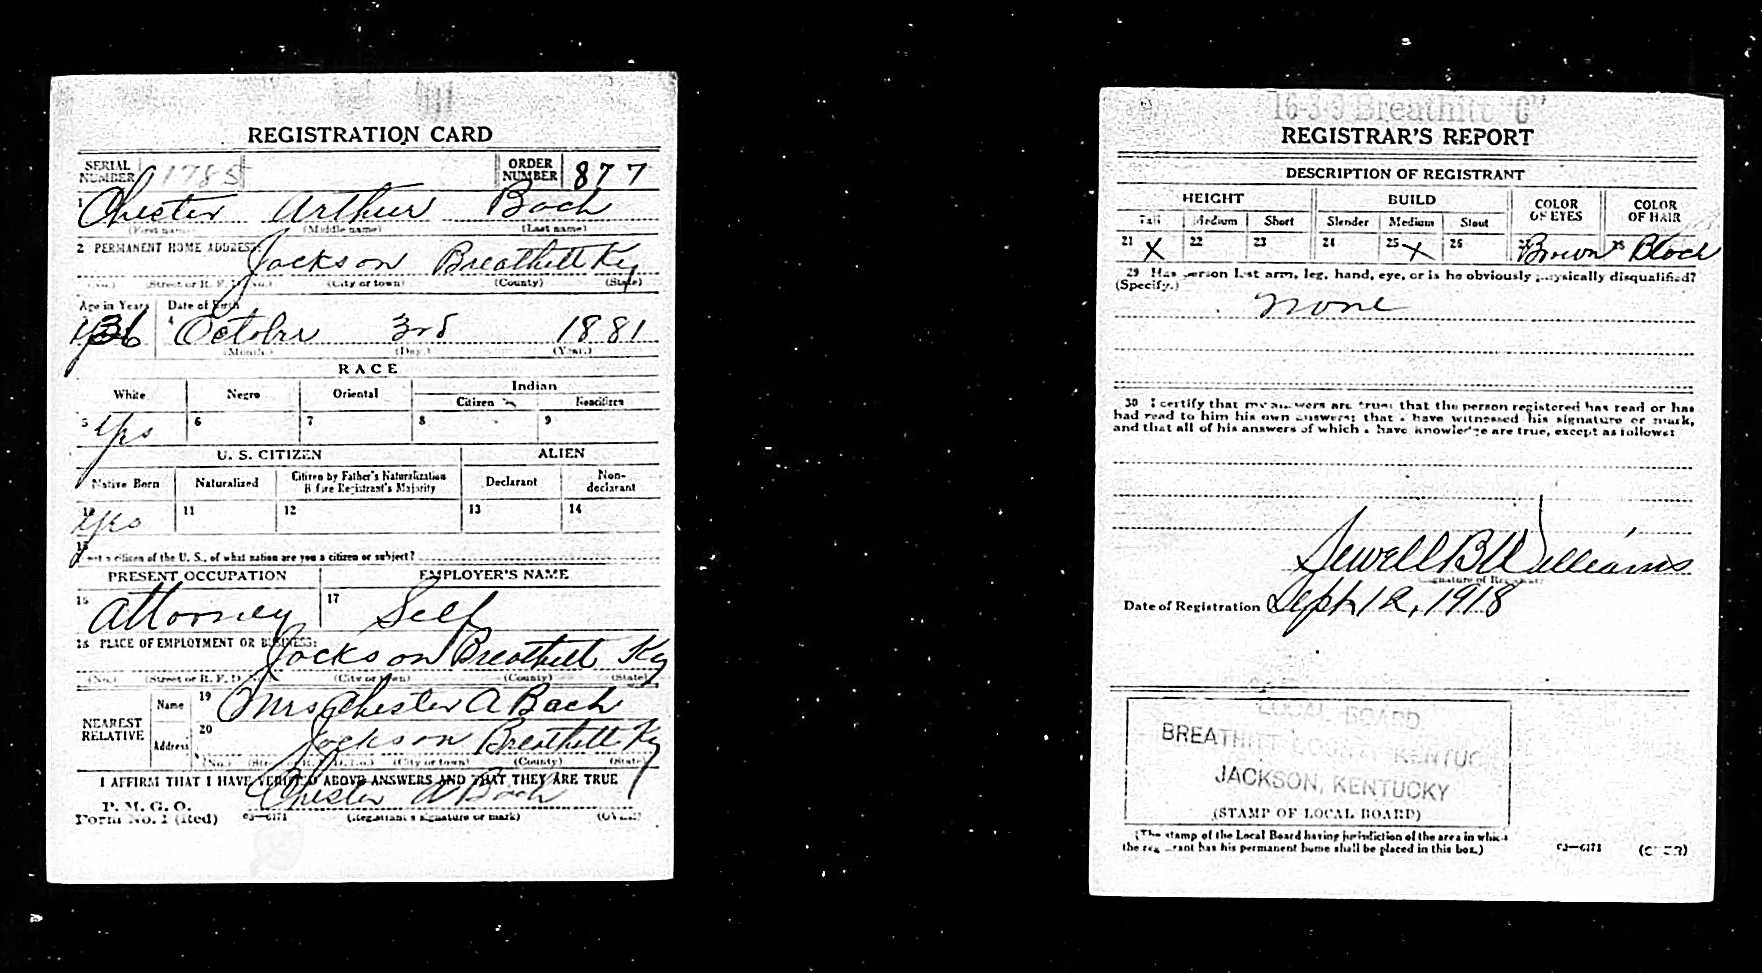 REGISTRATION CARD
SERIAL NUMBER 1785 ORDER NUMBER 877
1 Chester Arthur Bach
(First name) (Middle name) (Last name)
2 PERMANENT HOME ADDRESS:
Jackson Breathitt Ky
(No.) (Street or R. F. D. No.) (City or town) (County) (State)
Age in Years Date of Birth
36 4 October 3rd 1881
(Month.) (Day.) (Year.)
RACE
White Negro Oriental Indian
Citizen Noncitizen
5 Yes 6 7 8 9
U. S. CITIZEN ALIEN
Native Born Naturalized Citizen by Father's Naturalization Before Registrant's Majority Declarant Non-declarant
10 Yes 11 12 13 14
15
not a citizen of the U. S., of what nation are you a citizen or subject?
PRESENT OCCUPATION EMPLOYER'S NAME
16 Attorney 17 Self
18 PLACE OF EMPLOYMENT OR BUSINESS:
Jackson Breathitt Ky
(No.) (Street or R. F. D. No.) (City or town) (County) (State)
NEAREST RELATIVE Name 19 Mrs Chester A Bach
Address 20 Jackson Breathitt Ky
(No.) (Street or R. F. D. No.) (City or town) (County) (State)
I AFFIRM THAT I HAVE VERIFIED ABOVE ANSWERS AND THAT THEY ARE TRUE
Chester A Bach
P. M. G. O.
Form No. 1 (Red) 03—6171 (Registrant's signature or mark) (OVER)
16-3-9 Breathitt "C"
REGISTRAR'S REPORT
DESCRIPTION OF REGISTRANT
HEIGHT BUILD COLOR OF EYES COLOR OF HAIR
Tall Medium Short Slender Medium Stout
21 X 22 23 24 25 X 26 27 Brown 28 Black
29 Has person lost arm, leg, hand, eye, or is he obviously physically disqualified?
(Specify.)
None
30 I certify that my answers are true; that the person registered has read or has
had read to him his own answers; that I have witnessed his signature or mark,
and that all of his answers of which I have knowledge are true, except as follows:
Sewell B Williams
(Signature of Registrar)
Date of Registration Sept 12, 1918
LOCAL BOARD
BREATHITT COUNTY KENTUC
JACKSON, KENTUCKY
(STAMP OF LOCAL BOARD)
(The stamp of the Local Board having jurisdiction of the area in which
the registrant has his permanent home shall be placed in this box.)
03—6171 (OVER)